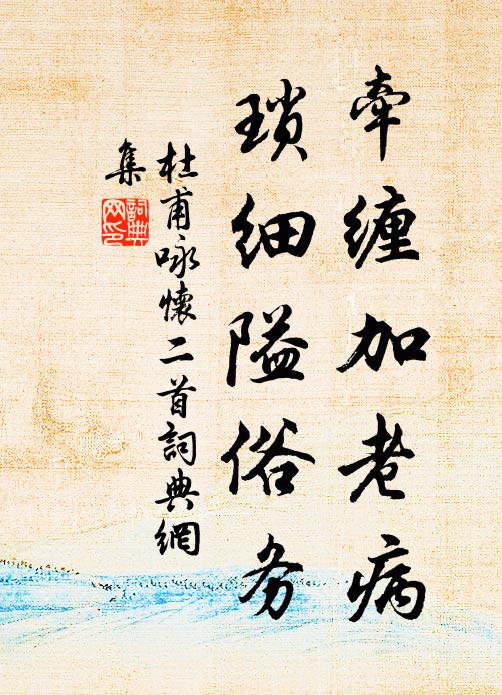 牵缠加老病
琐细隘俗务
杜甫咏怀二首词典網
集
詞典网印